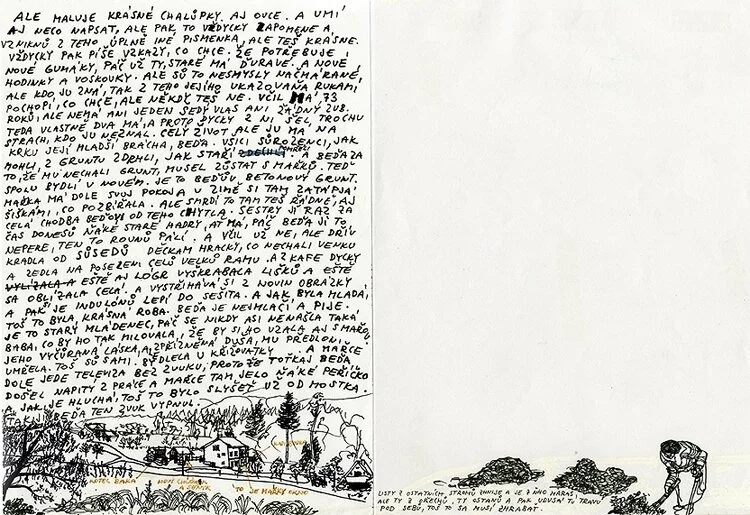 ALE MALUJE KRÁSNÉ CHALÚPKY. AJ OVCE. A UMÍ
AJ NECO NAPSAT, ALE PAK TO VŽDYCKY ZAPOMENE A
VZNIKNÚ Z TEHO ÚPLNÉ INÉ PISMENKA, ALE TEŠ KRÁSNE.
VŽDYCKY PAK PÍŠE VZKAZY, CO CHCE. ŽE POTŘEBUJE
NOVÉ GUMÁKY, PAČ UŽ TY STARÉ MÁ DURAVÉ. A NOVÉ
HODINKY A VOSKOUKY. ALE SÚ TO NESMYSLY NAČMÁRANÉ,
ALE KDO JU ZNÁ, TAK Z TEHO JEJÍHO UKAZOVÁŇÁ RUKAMI
POCHOPÍ, CO CHCE, ALE NĚKDY TEŠ NE. VČIL MÁ 73
ROKÚ, ALE NEMÁ ANI JEDEN ŠEDÝ VLAS ANI ŽÁDNÝ ZUB.
TEDA VLASTNĚ DVA MÁ, A PROTO DYCKY Z NÍ ŠEL TROCHU
STRACH, KDO JU NEZNAL. CELÝ ŽIVOT ALE JU MÁ NA
KRKU JEJÍ MLADŠÍ BRÁCHA, BEĎA. VŠICI SÚROZENCI, JAK
MOHLI, Z GRUNTU ZDRHLI, JAK STAŘÍ ZDECHLI POMŘELI. A BEĎA ZA
TO, ŽE MU NECHALI GRUNT, MUSEL ZŮSTAT S MAŘKÚ. TEĎ
SPOLU BYDLÍ V NOVÉM. JE TO BEĎÚV BETONOVÝ GRUNT.
MAŘKA MÁ DOLE SVOJ POKOJ A V ZIMĚ SI TAM ZATÁPJÁ
ŠIŠKÁMI, CO POZBÍRALA. ALE SMRDÍ TO TAM TEŠ ŘÁDNE, AJ
CELÁ CHODBA BEĎOVI OD TEHO CHYTLA. SESTRY JÍ RAZ ZA
ČAS DONESÚ ŇÁKÉ STARÉ HADRY, AŤ MÁ, PAČ BEĎA JÍ TO
NEPERE, TEN TO ROVNÚ PÁLÍ. A VČIL UŽ NE, ALE DŘÍV
KRADLA OD SÚSEDÚ DĚCKÁM HRAČKY, CO NECHALI VENKU
A ZEDLA NA POSEZENÍ CELÚ VELKÚ RAMU. A Z KAFE DYCKY
VYLÍZALA A EŠTĚ AJ LÓGR VYSKRABALA LIŠKÚ A EŠTĚ
SA OBLÍZALA CELÁ. A VYSTŘIHÁVÁ SI Z NOVIN OBRÁZKY
A PAK JE INDULÓNÚ LEPÍ DO SEŠITA. A JAK BYLA MLADÁ,
TOŠ TO BYLA KRÁSNÁ ROBA. BEĎA JE NEJMLAČÍ A PIJE.
JE TO STARÝ MLÁDENEC, PAČ SE NIKDY ASI NENAŠLA TAKÁ
BABA, CO BY HO TAK MILOVALA, ŽE BY SI HO VZALA AJ S MAŘKÚ.
JEHO VYČŮRANÁ LÁSKA, A SPŘÍZNĚNÁ DUŠA, MU PŘEDLONI
UMŘELA. TOŠ SÚ SAMI. BYDLELA U KŘIŽOVATKY. A MARCE
DOLE JEDE TELEVIZA BEZ ZVUKU, PROTOŽE TOTKAJ BEĎA
DOŠEL NAPITÝ Z PRÁCE A MARCE TAM JELO ŇÁKÉ PÉRIČKO
A JAK JE HLUCHÁ, TOŠ TO BYLO SLYŠET UŽ OD MOSTKA.
TAK JÍ BEĎA TEN ZVUK VYPNUL.
HOTEL BAŘA
TO JE MAŘKY OKNO
LISTY Z OSTATNÍCH STROMÚ ZHNIJE A JE Z ŇHO HARAŠ,
ALE TY Z OŘECHU, TY OSTANÚ A PAK UDUSÁ TÚ TRÁVU
POD SEBÚ, TOŠ TO SA MUSÍ ZHRABAT.